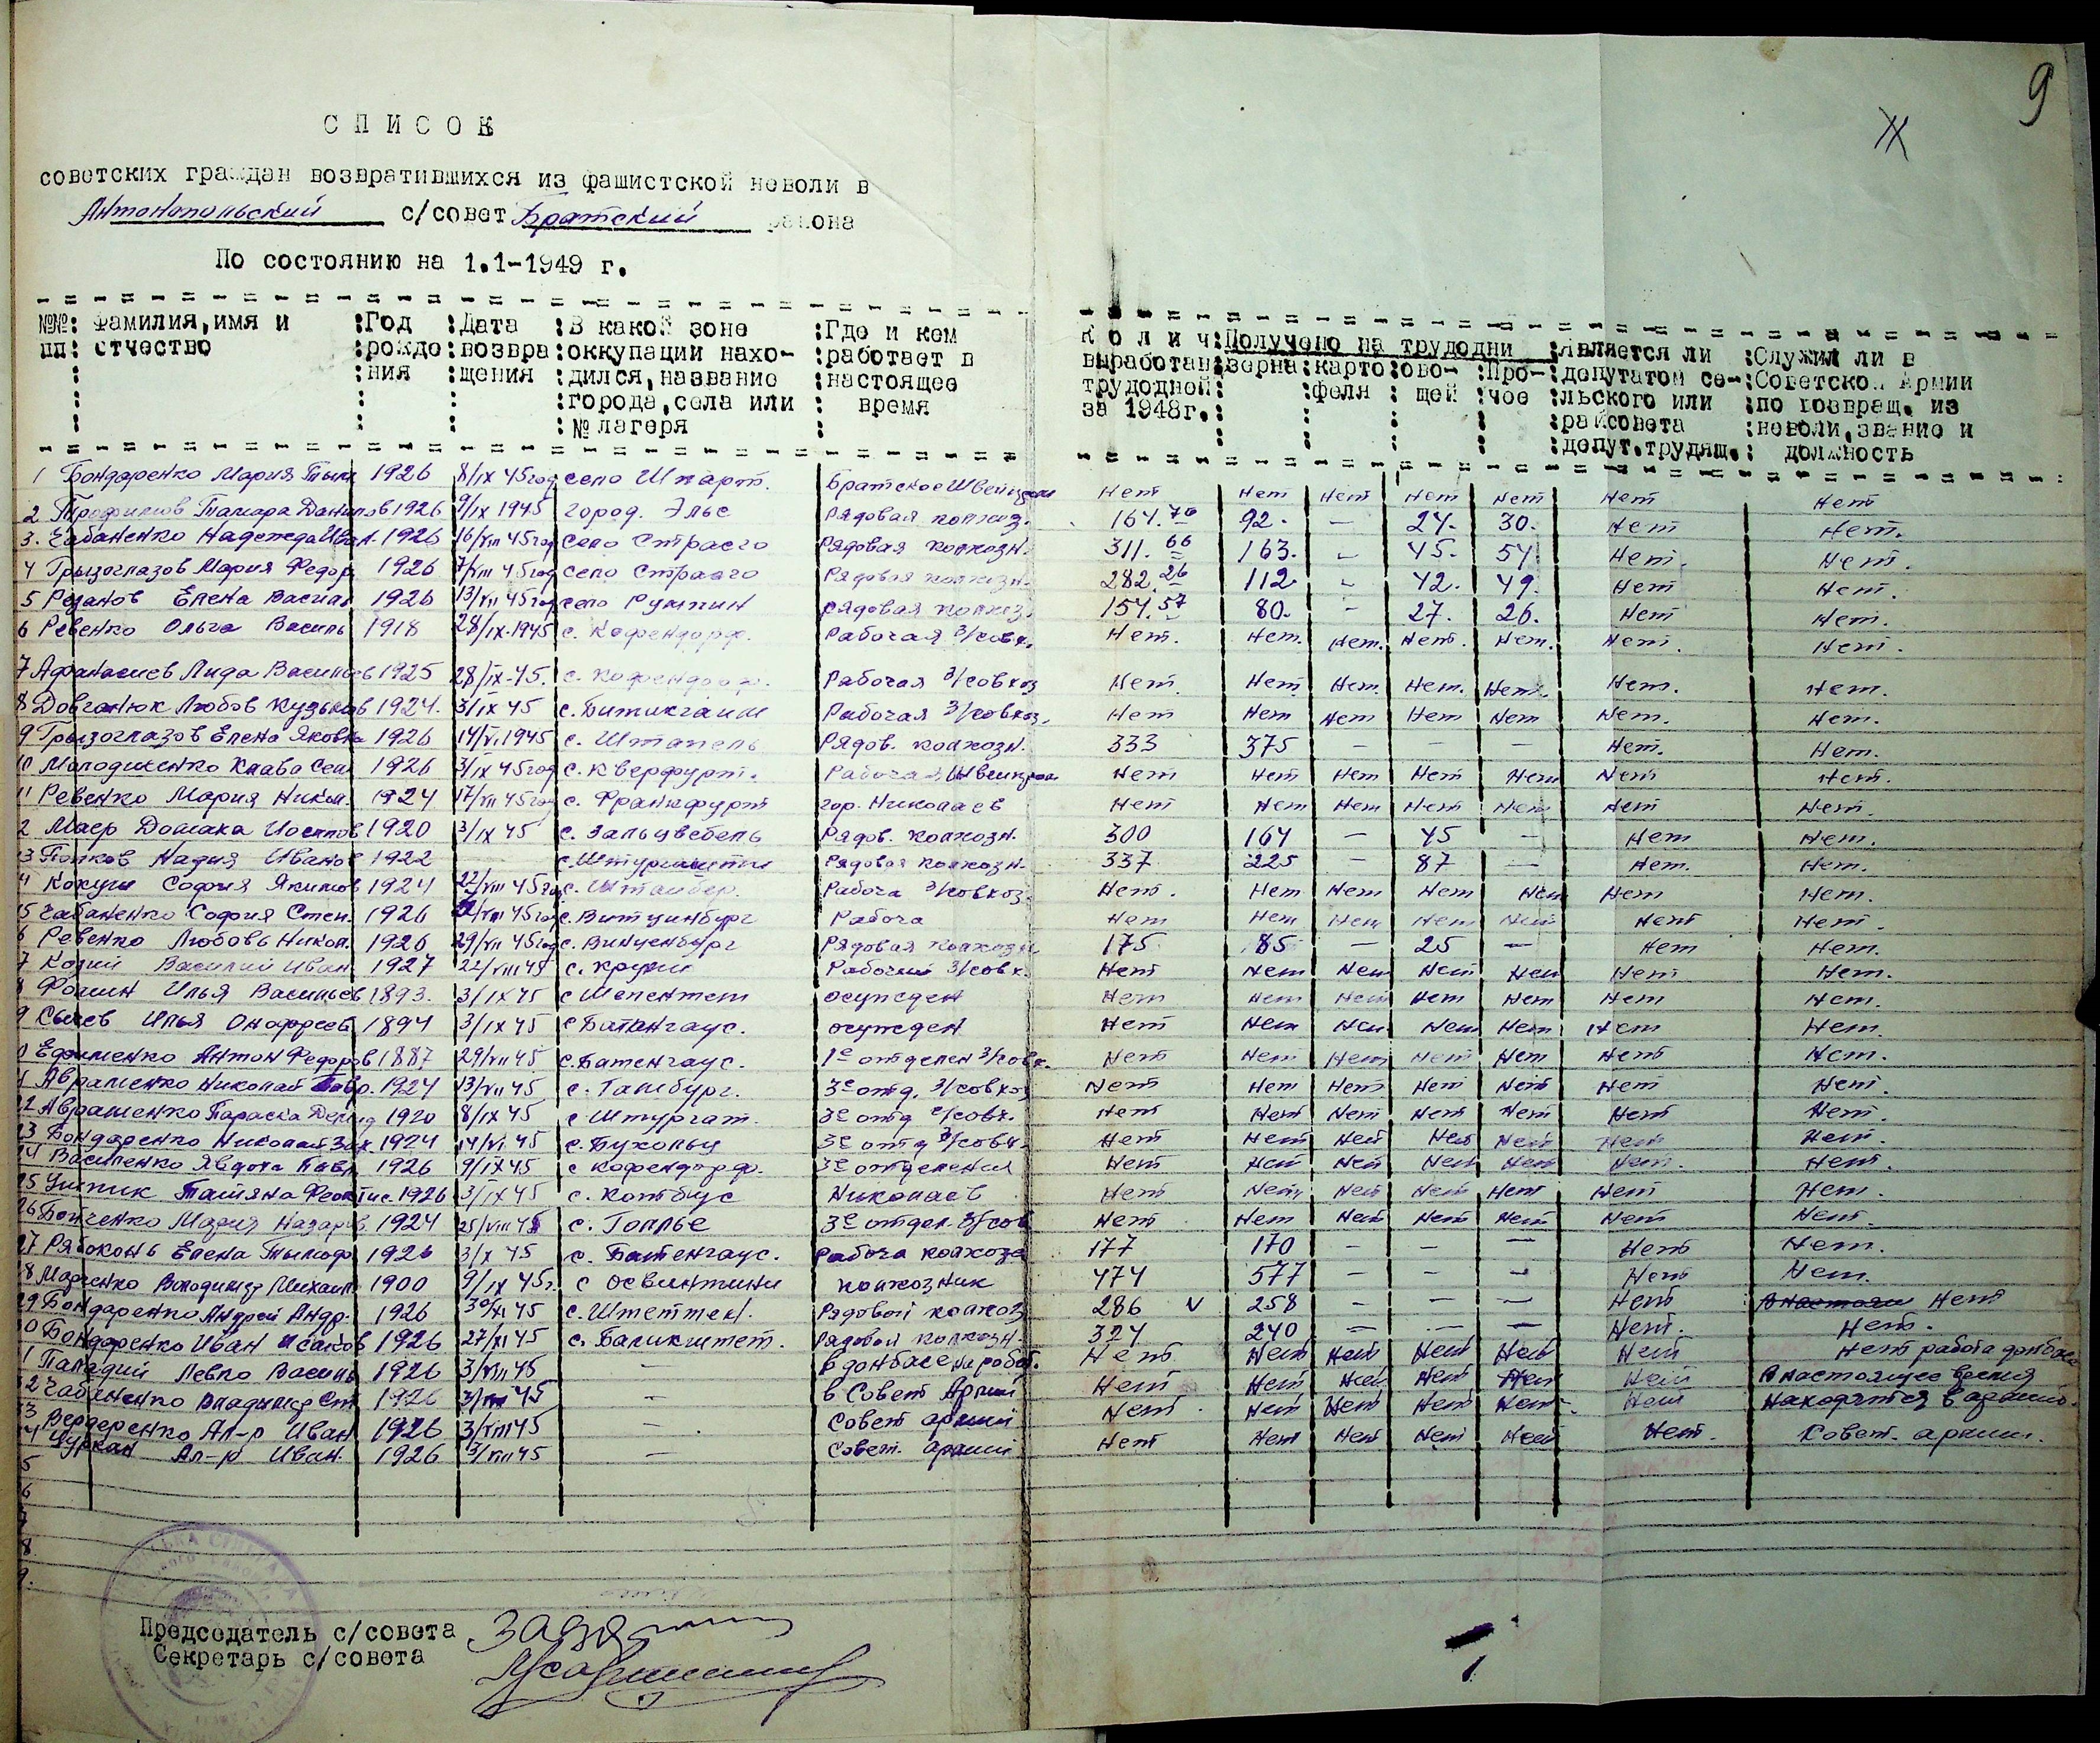 9
СПИСОК
советских граждан возвратившихся из фашистской неволи в
Антонопольский с/совет Братский района
По состоянию на 1.1-1949 г.
№№ пп : Фамилия, имя и отчество : Год рождения : Дата возвращения : В какой зоне оккупации находился, название города, села или № лагеря : Где и кем работает в настоящее время : Колич выработан трудодней за 1948г. : Получено на трудодни : зерна : картофеля : овощей : прочое : Является ли депутатом сельского или райсовета депут. трудящ. : Служил ли в Советской Армии по возвращ. из неволи, звание и должность
1 Бондаренко Мария Тым 1926 8/IX 45 год село Штарт. Братское Нет Нет Нет Нет Нет Нет Нет
2 Трофимов Тамара Данилов 1926 9/IX 1945 город. Эльс Рядовая колхоз. 164.70 92. — 24. 30. Нет Нет.
3. Чабаненко Надежда Иван. 1926 16/VIII 45 год село Страсго Рядовая колхозн. 311.66 163. — 45. 54 Нет. Нет.
4 Грызоглазов Мария Федор 1926 7/VIII 45 год село Страсго Рядовая колхозн. 282.26 112. — 42. 49. Нет Нет.
5 Резанов Елена Василь 1926 13/VII 45 год село Румпин рядовая колхоз. 154.57 80. — 27. 26. Нет Нет.
6 Ревенко Ольга Василь 1918 28/IX-1945 с. Кофендорф. Рабочая з/совх. Нет. Нет. Нет. Нет. Нет. Нет. Нет.
7 Афанасиев Лида Васильев 1925 28/IX-45. с. Кофендорф. Рабочая з/совхоз Нет. Нет Нет. Нет. Нет. Нет. Нет.
8 Довганюк Любов Кузьмов 1924. 3/IX 45 с. Рабочая з/совхоз. Нет Нет Нет Нет Нет Нет. Нет.
9 Грызоглазов Елена Яковл 1926 14/VI 1945 с. Штапель Рядов. колхозн. 333 375 — — — Нет. Нет.
10 Молодиченко Клава Сем 1926 3/IX 45 год с. Кверфурт. Рабочая Нет Нет Нет Нет Нет Нет Нет.
11 Ревенко Мария Никол. 1924 17/VII 45 год с. Франкфурт гор. Николаев Нет Нет Нет Нет Нет Нет Нет.
2 Маер Домаха Иосипов 1920 3/IX 45 с. Зальцведель Рядов. колхозн. 300 164 — 45 — Нет Нет.
3 Попков Надия Иванов 1922 Рядовая колхозн. 337 225 — 87 — Нет. Нет.
4 Кокуш София Якимов 1924 22/VIII 45 год с. Рабоча з/совхоз. Нет. Нет Нет Нет Нет Нет Нет.
5 Чабаненко София Степ. 1926 /VIII 45 год с. Витцинбург Рабоча Нет Нет Нет Нет Нет Нет Нет.
6 Ревенко Любовь Никол. 1926 29/VII 45 год с. Винценбург Рядовая колхозн 175 85 — 25 — Нет Нет.
7 Козий Василий Иван 1927 22/VIII 45 с. Рабочий з/совх. Нет Нет Нет Нет Нет Нет Нет.
8 Фомин Илья Васильев 1893. 3/IX 45 с осужден Нет Нет Нет Нет Нет Нет Нет.
9 Сычев Илья Онофреев 1894 3/IX 45 с Батангаус. осужден Нет Нет Нет Нет Нет Нет Нет.
0 Ефименко Антон Федоров 1887 29/VII 45 с. Батенгаус. 1е отделен з/совх. Нет Нет Нет Нет Нет Нет Нет.
1 Авраменко Николай Павл. 1924 13/VII 45 с. Гамбург. 3е отд. з/совхоз Нет Нет Нет Нет Нет Нет Нет.
22 Авраменко Параска 1920 8/IX 45 с Штургат. 3е отд з/совх. Нет Нет Нет Нет Нет Нет Нет.
23 Бондаренко Николай Зах. 1924 14/VI 45 с. Бухольц 3е отд з/совх. Нет Нет Нет Нет Нет Нет Нет.
24 Василенко Явдоха Павл 1926 9/IX 45 с Кофендорф. 3е отделения Нет Нет Нет Нет Нет Нет. Нет.
25 Татяна Феоктис. 1926 3/IX 45 с. Котбус Николаев Нет Нет Нет Нет Нет Нет Нет.
26 Бойченко Мария Назаров. 1924 25/VIII 45 с. Голлье 3е отдел. з/сов Нет Нет Нет Нет Нет Нет Нет.
27 Рябоконь Елена Тымоф 1926 3/X 45 с. Батенгаус. Рабоча колхоза 177 170 — — — Нет Нет.
28 Марченко Володимер Михаил 1900 9/IX 45 г. с Освинтини колхозник 474 577 — — — Нет Нет.
29 Бондаренко Андрей Андр. 1926 30/XI 45 с. Штеттен. Рядовой колхоз 286 v 258 — — — Нет Нет
30 Бондаренко Иван Исаков 1926 27/XI 45 с. Баликштет. Рядовой колхозн. 324 240 — — — Нет. Нет.
1 Левко Василь 1926 3/VIII 45 — в донбасе на работ. Нет Нет Нет Нет Нет Нет Нет работа донбасе
32 Чабаненко Владимер Ст 1926 3/VIII 45 — в Совет Армий Нет Нет Нет Нет Нет Нет В настоящее время
33 Вердеренко Ал-р Иван 1926 3/VIII 45 — Совет армий Нет. Нет Нет Нет Нет. Нет находятся в армию.
4 Чуркан Ал-р Иван. 1926 3/VIII 45 — Совет. армий Нет Нет Нет Нет Нет Нет. Совет. армии.
5
6
7
8.
9.
Председатель с/совета
Секретарь с/совета